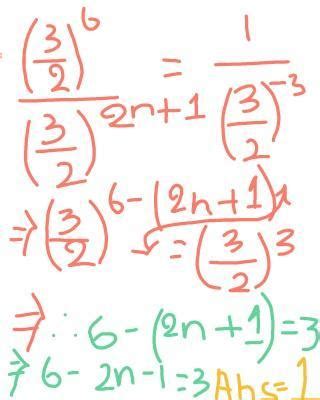 (3/2)^6 / (3/2)^2n+1 = 1 / (3/2)^-3
⇒ (3/2)^6-(2n+1) = (3/2)^3
⇒ ∴ 6-(2n+1)=3
⇒ 6-2n-1=3 Ans=1